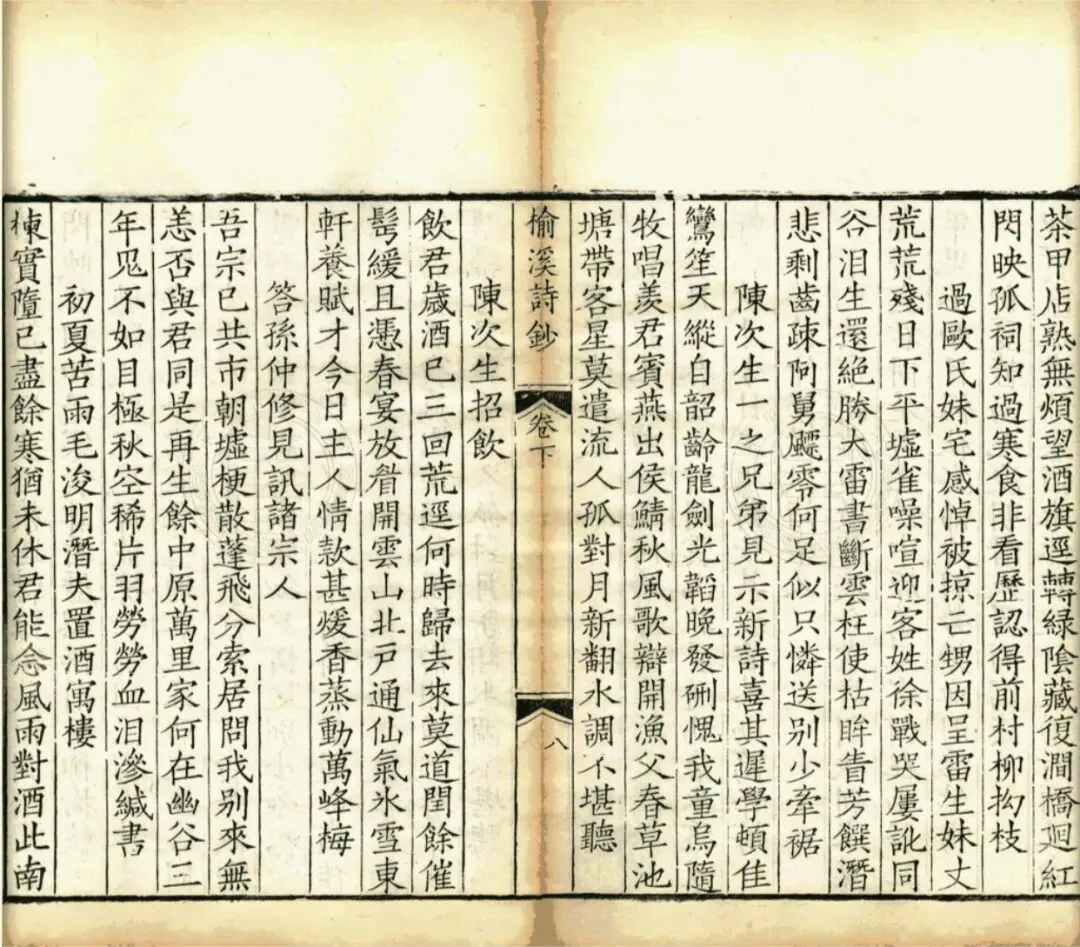 茶甲㡳熟無煩望酒旗逕轉綠陰藏復澗橋廻紅
閃映孤祠知過寒食非看歷認得前村柳抝枝
過歐氏妹宅感悼被掠亡甥因呈雷生妹丈
荒荒殘日下平墟雀噪喧迎客姓徐戰哭屢訛同
谷泪生還絕勝大雷書斷雲枉使枯眸眚芳饌潛
悲剩齒疎阿舅飃零何足似只憐送別少牽裾
陳次生一之兄弟見示新詩喜其遲學頓佳
鸞笙天縱白韶齡龍劍光韜晚發硎愧我童烏隨
牧唱羨君賓燕出侯鯖秋風歌辯開漁父春草池
塘帶客星莫遣流人孤對月新翻水調不堪聽
榆溪詩鈔
卷下
八
陳次生招飲
飲君歲酒已三回荒逕何時歸去來莫道閏餘催
髩緩且憑春宴放眉開雲山北戸通仙氣氷雪東
軒養賦才今日主人情款甚煖香蒸動萬峰梅
答孫仲修見訊諸宗人
吾宗已共市朝墟梗散蓬飛分索居問我别來無
恙否與君同是再生餘中原萬里家何在幽谷三
年見不如目極秋空稀片羽勞勞血泪滲緘書
初夏苦雨毛浚明潛夫置酒寓樓
棟實隨已盡餘寒猶未休君能念風雨對酒此南